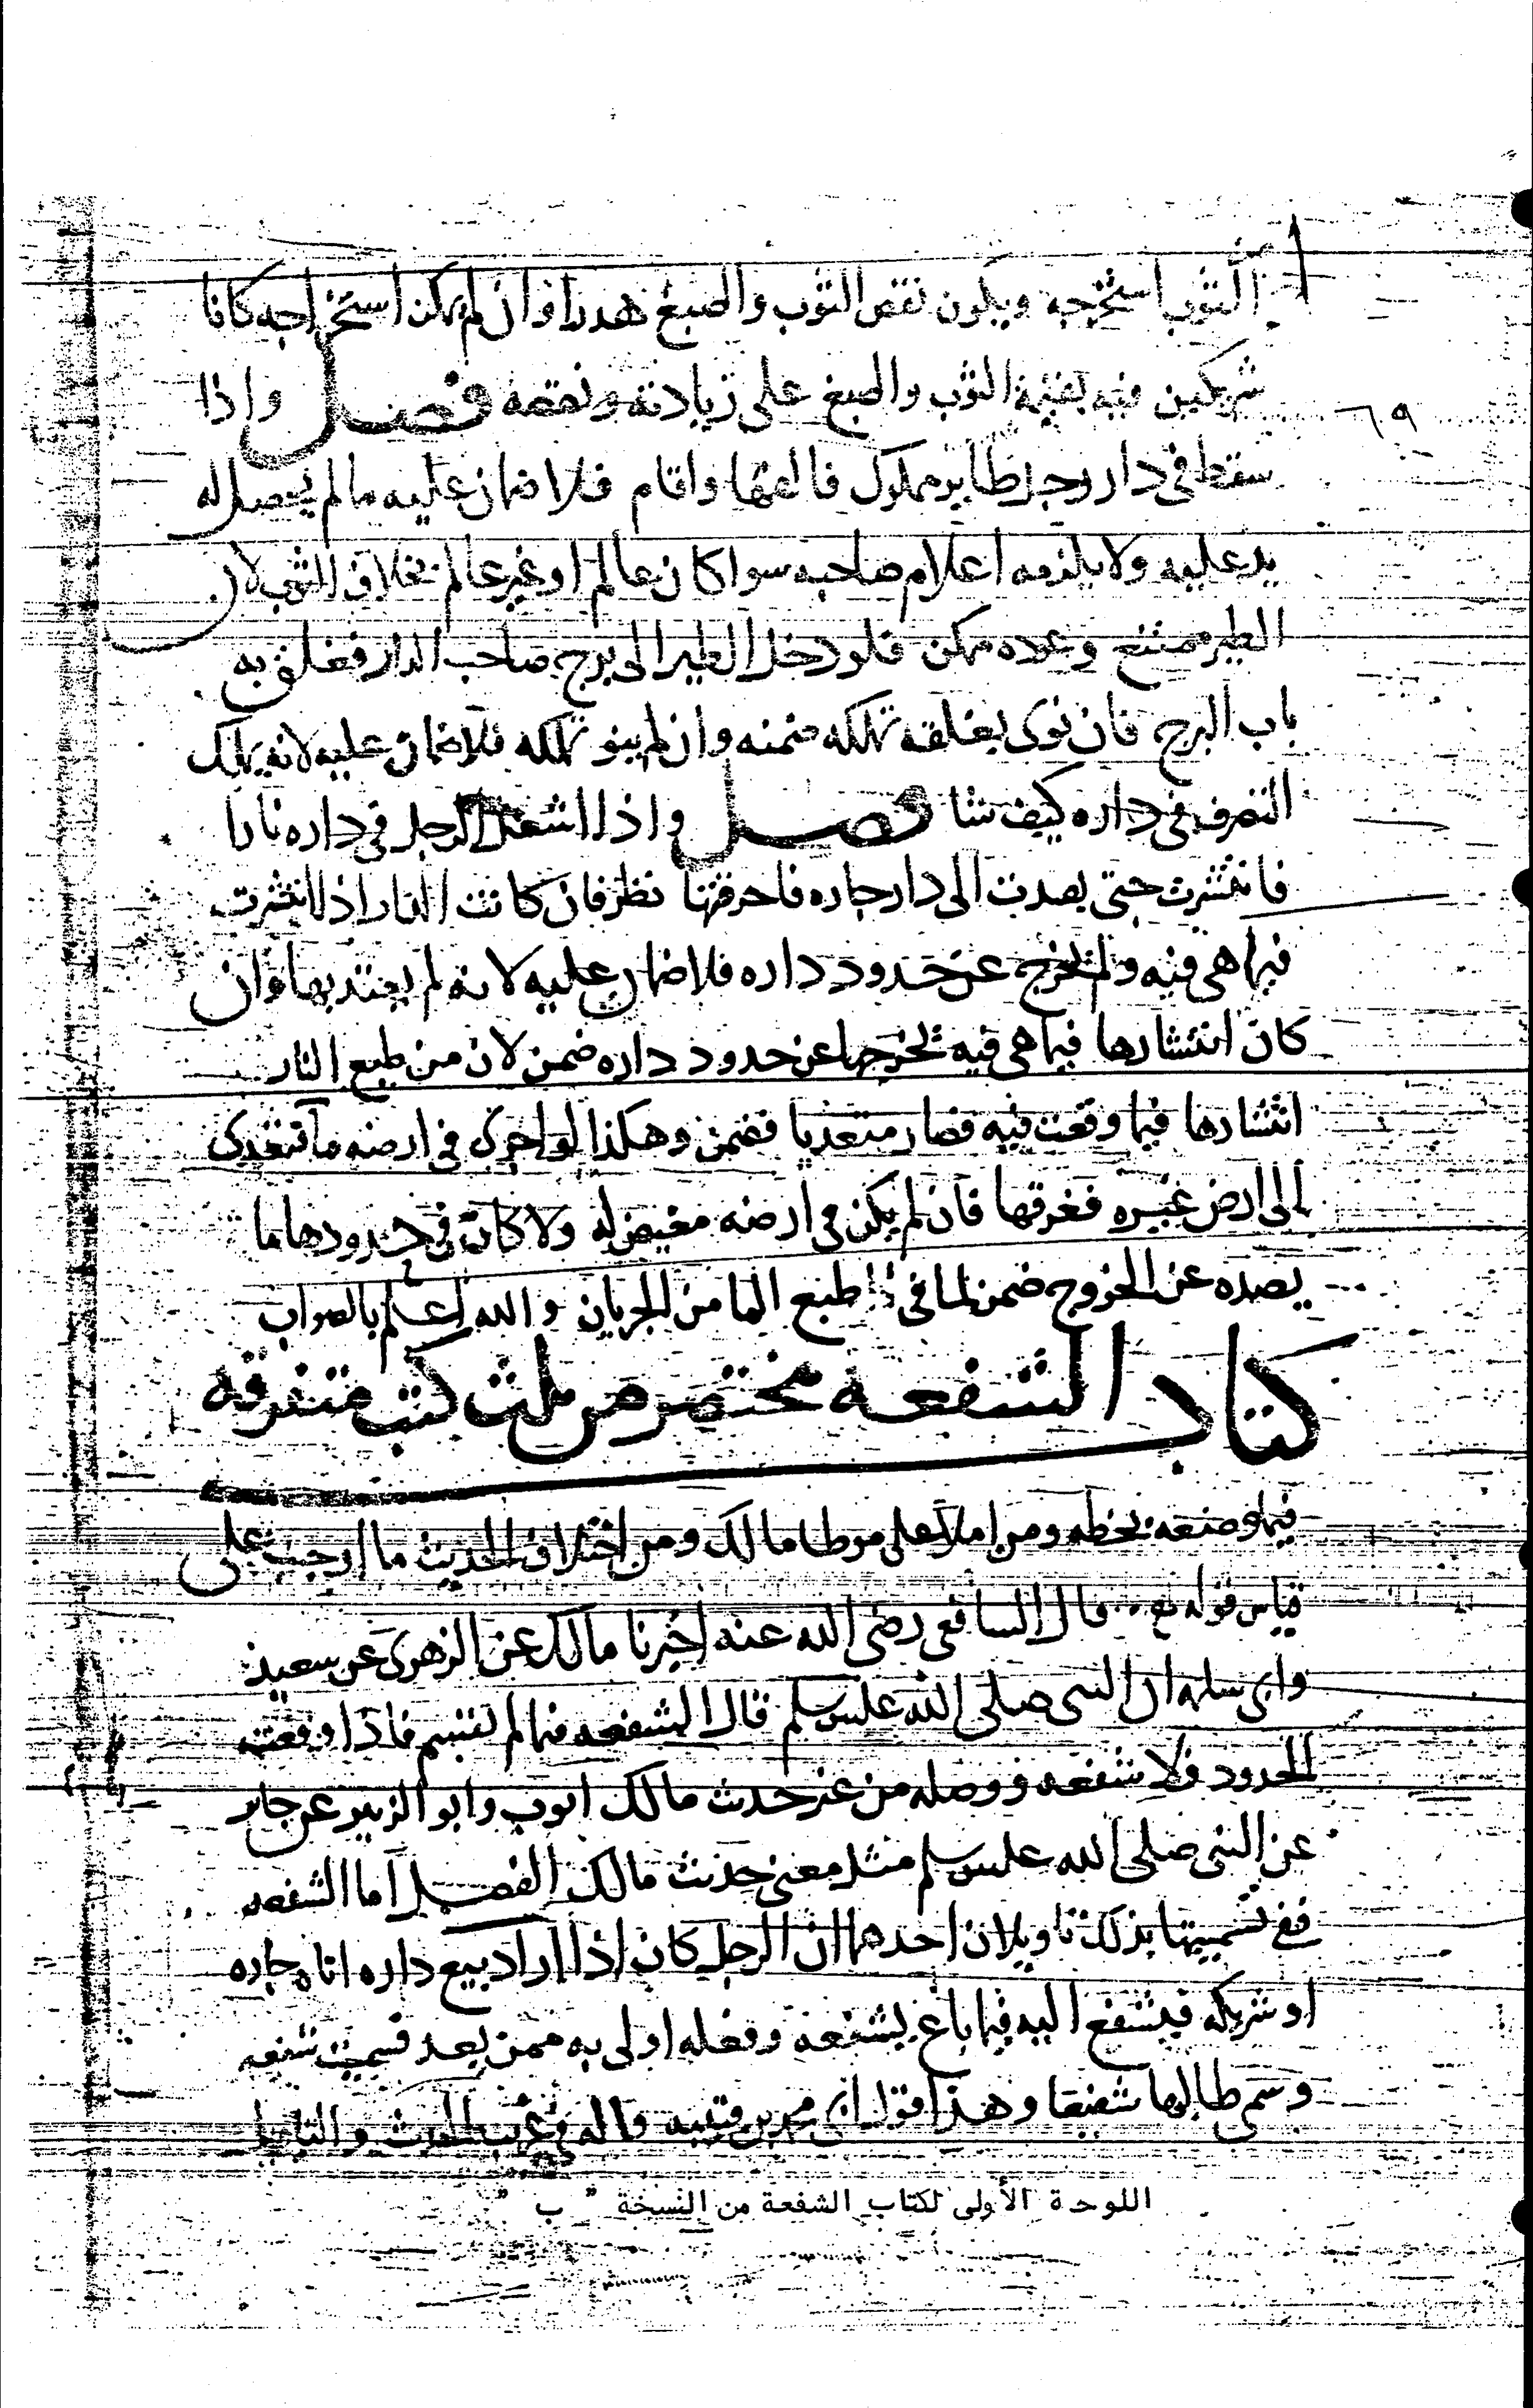 الثوب استخرجه ويكون نقص الثوب والصبغ هدرا وان لم يمكن استخراجه كانا
شريكين فيه بقيمة الثوب والصبغ على زيادته ونقصه فصل واذا
٦٩
سقط في دار رجل طاير مملوك فالفها واقام فلا ضمان عليه ما لم يحصل له
يد عليه ولا يلزمه اعلام صاحبه سوا كان عالم او غير عالم بخلاف الثوب لان
الطير ممتنع وعوده ممكن فلو دخل الطير الى برج صاحب الدار فغلق به
باب البرج فان نوى بغلقه تملكه ضمنه وان لم ينو تملكه فلا ضمان عليه لانه يملك
التصرف في داره كيف شا فصل واذا اشعل الرجل في داره نارا
فانتشرت حتى بعدت الى دار جاره فاحرقتها نظر فان كانت النار اذا انتشرت
فيما هي فيه ولم تخرج عن حدود داره فلا ضمان عليه لانه لم يعتد بها وان
كان انتشارها فيما هي فيه تخرجها عن حدود داره ضمن لان من طبع النار
انتشارها فيما وقعت فيه فصار متعديا فضمن وهكذا لو اجرى في ارضه ما فتعدى
الى ارض غيره فغرقها فان لم يكن في ارضه مغيض له ولا كان في حدودها ما
يصده عن الخروج ضمن لما في طبع الما من الجريان والله اعلم بالصواب
كتاب الشفعه مختصر من ثلث كتب متفرقه
فيما وضعه بخطه ومن املا على موطا مالك ومن اختلاف الحديث ما اوجبت على
قياس قوله قال الشافعي رضي الله عنه اخبرنا مالك عن الزهري عن سعيد
وابي سلمه ان النبي صلى الله عليه وسلم قال الشفعه فيما لم يقسم فاذا وقعت
الحدود فلا شفعه ووصله من غير حديث مالك ايوب وابو الزبير عن جابر
عن النبي صلى الله عليه وسلم مثل معنى حديث مالك الفصل اما الشفعه
ففي تسميتها بذلك تاويلان احدهما ان الرجل كان اذا اراد بيع داره اتاه جاره
او شريكه فيشفع اليه فيما باع بشفعه وفعله اولى به ممن بعد فسميت شفعه
وسمي طالبها شفيعا وهذا قول ابي محمد بن قتيبه قاله في غريب الحديث والتاويل
اللوحة الأولى لكتاب الشفعة من النسخة " ب "